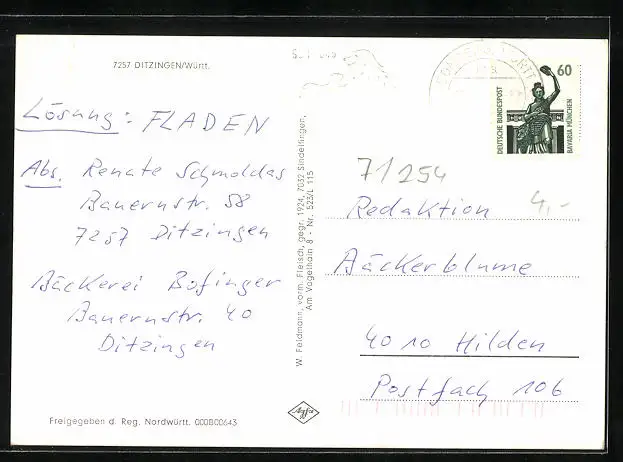 7257 DITZINGEN/Württ.
Lösung: FLADEN
Abs. Renate Schmoldas
Bauernstr. 58
7257 Ditzingen
Bäckerei Bofinger
Bauernstr. 40
Ditzingen
Freigegeben d. Reg. Nordwürtt. 000B00643
W. Feldmann, vorm. Fleisch, gegr. 1924, 7032 Sindelfingen,
Am Vogelhain 8 - Nr. 523/L 115
Agfa
60
DEUTSCHE BUNDESPOST
BAVARIA MÜNCHEN
71254
4,-
Redaktion
Bäckerblume
4010 Hilden
Postfach 106